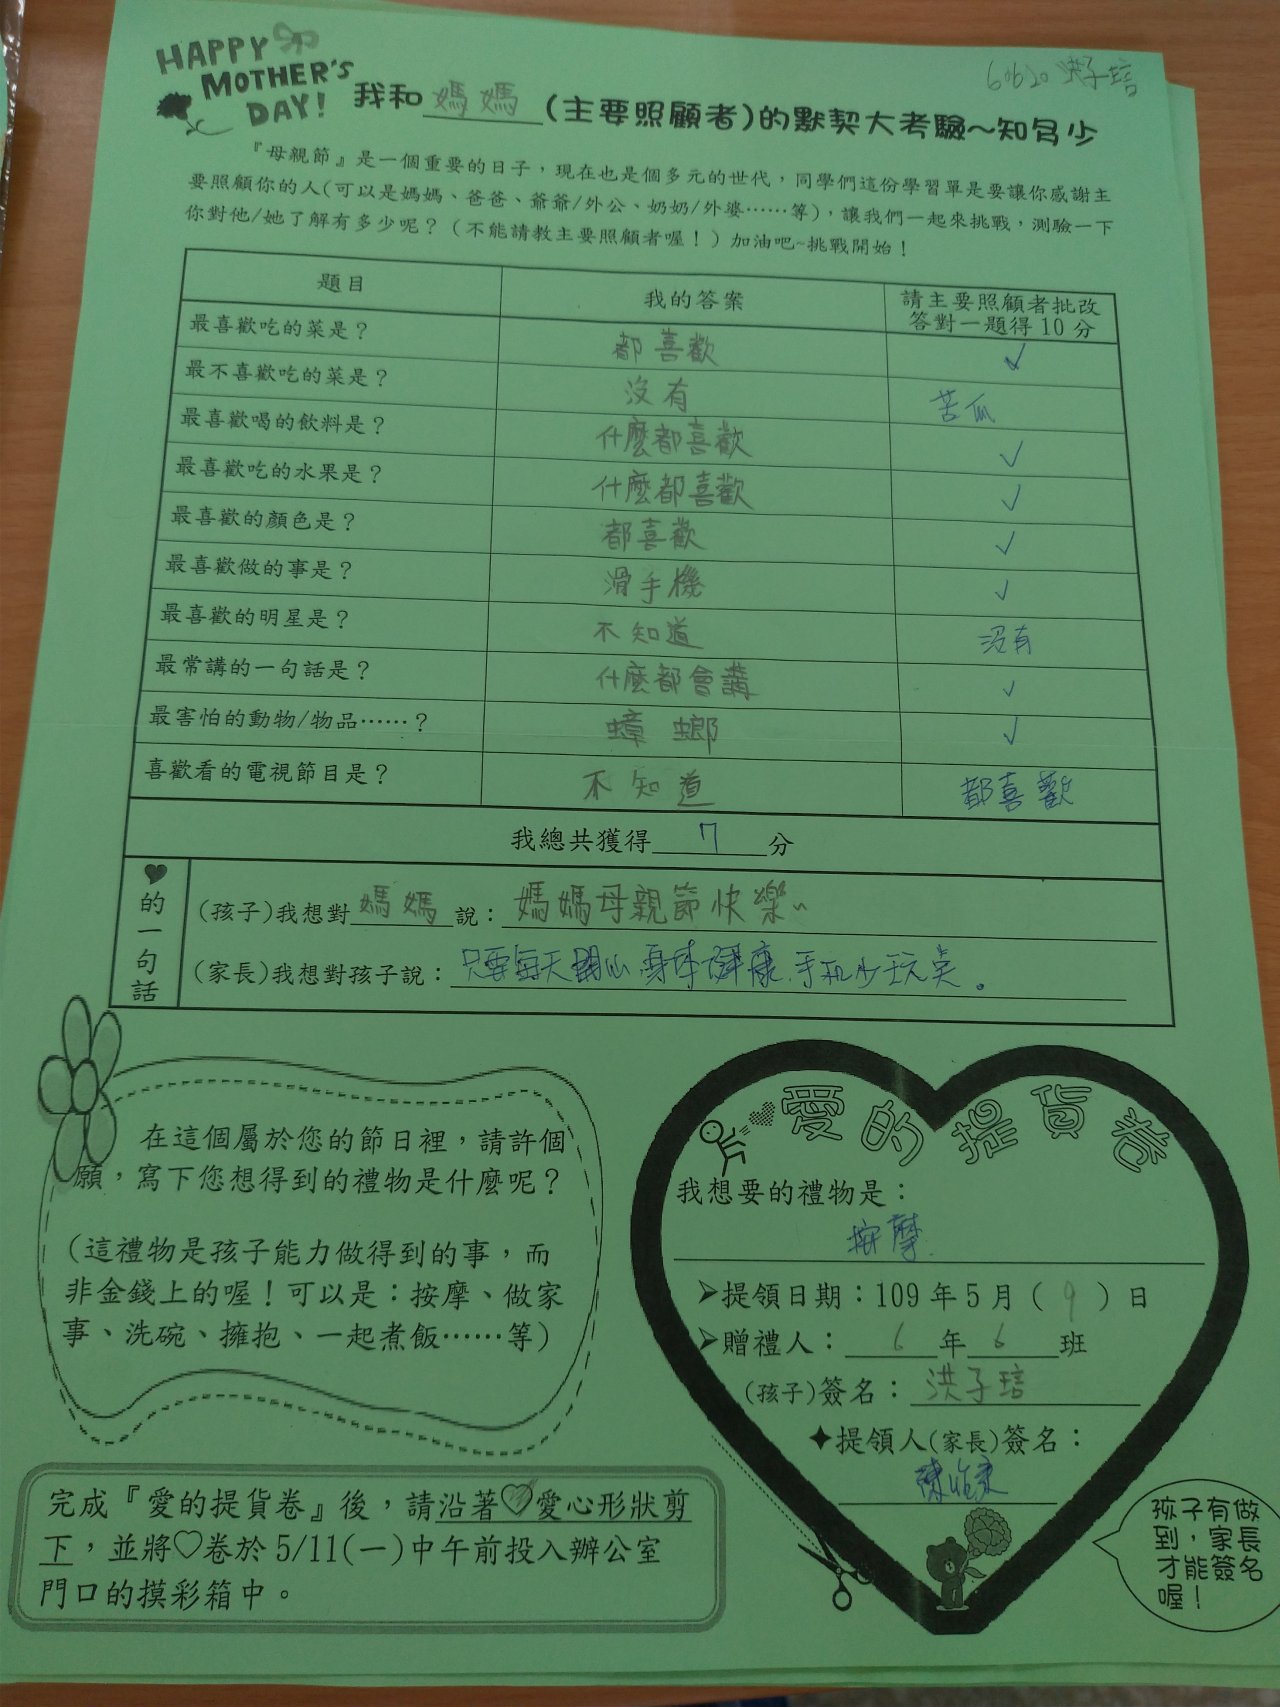 HAPPY
MOTHER'S
DAY!
60620 洪子琣
我和媽媽(主要照顧者)的默契大考驗~知多少
『母親節』是一個重要的日子，現在也是個多元的世代，同學們這份學習單是要讓你感謝主
要照顧你的人(可以是媽媽、爸爸、爺爺/外公、奶奶/外婆……等)，讓我們一起來挑戰，測驗一下
你對他/她了解有多少呢？（不能請教主要照顧者喔！）加油吧~挑戰開始！
題目 我的答案 請主要照顧者批改
答對一題得10分
最喜歡吃的菜是？ 都喜歡 ✓
最不喜歡吃的菜是？ 沒有 苦瓜
最喜歡喝的飲料是？ 什麼都喜歡 ✓
最喜歡吃的水果是？ 什麼都喜歡 ✓
最喜歡的顏色是？ 都喜歡 ✓
最喜歡做的事是？ 滑手機 ✓
最喜歡的明星是？ 不知道 沒有
最常講的一句話是？ 什麼都會講 ✓
最害怕的動物/物品……？ 蟑螂 ✓
喜歡看的電視節目是？ 不知道 都喜歡
我總共獲得 7 分
♥的一句話
(孩子)我想對媽媽說：媽媽母親節快樂~
(家長)我想對孩子說：只要每天開心,身体健康,手机少玩点。
在這個屬於您的節日裡，請許個
願，寫下您想得到的禮物是什麼呢？
(這禮物是孩子能力做得到的事，而
非金錢上的喔！可以是：按摩、做家
事、洗碗、擁抱、一起煮飯……等)
完成『愛的提貨卷』後，請沿著♡愛心形狀剪
下，並將♡卷於 5/11(一)中午前投入辦公室
門口的摸彩箱中。
愛的提貨卷
我想要的禮物是：
按摩
➢提領日期：109 年 5 月（ 9 ）日
➢贈禮人： 6 年 6 班
(孩子)簽名：洪子琣
✦提領人(家長)簽名：
孩子有做
到，家長
才能簽名
喔！